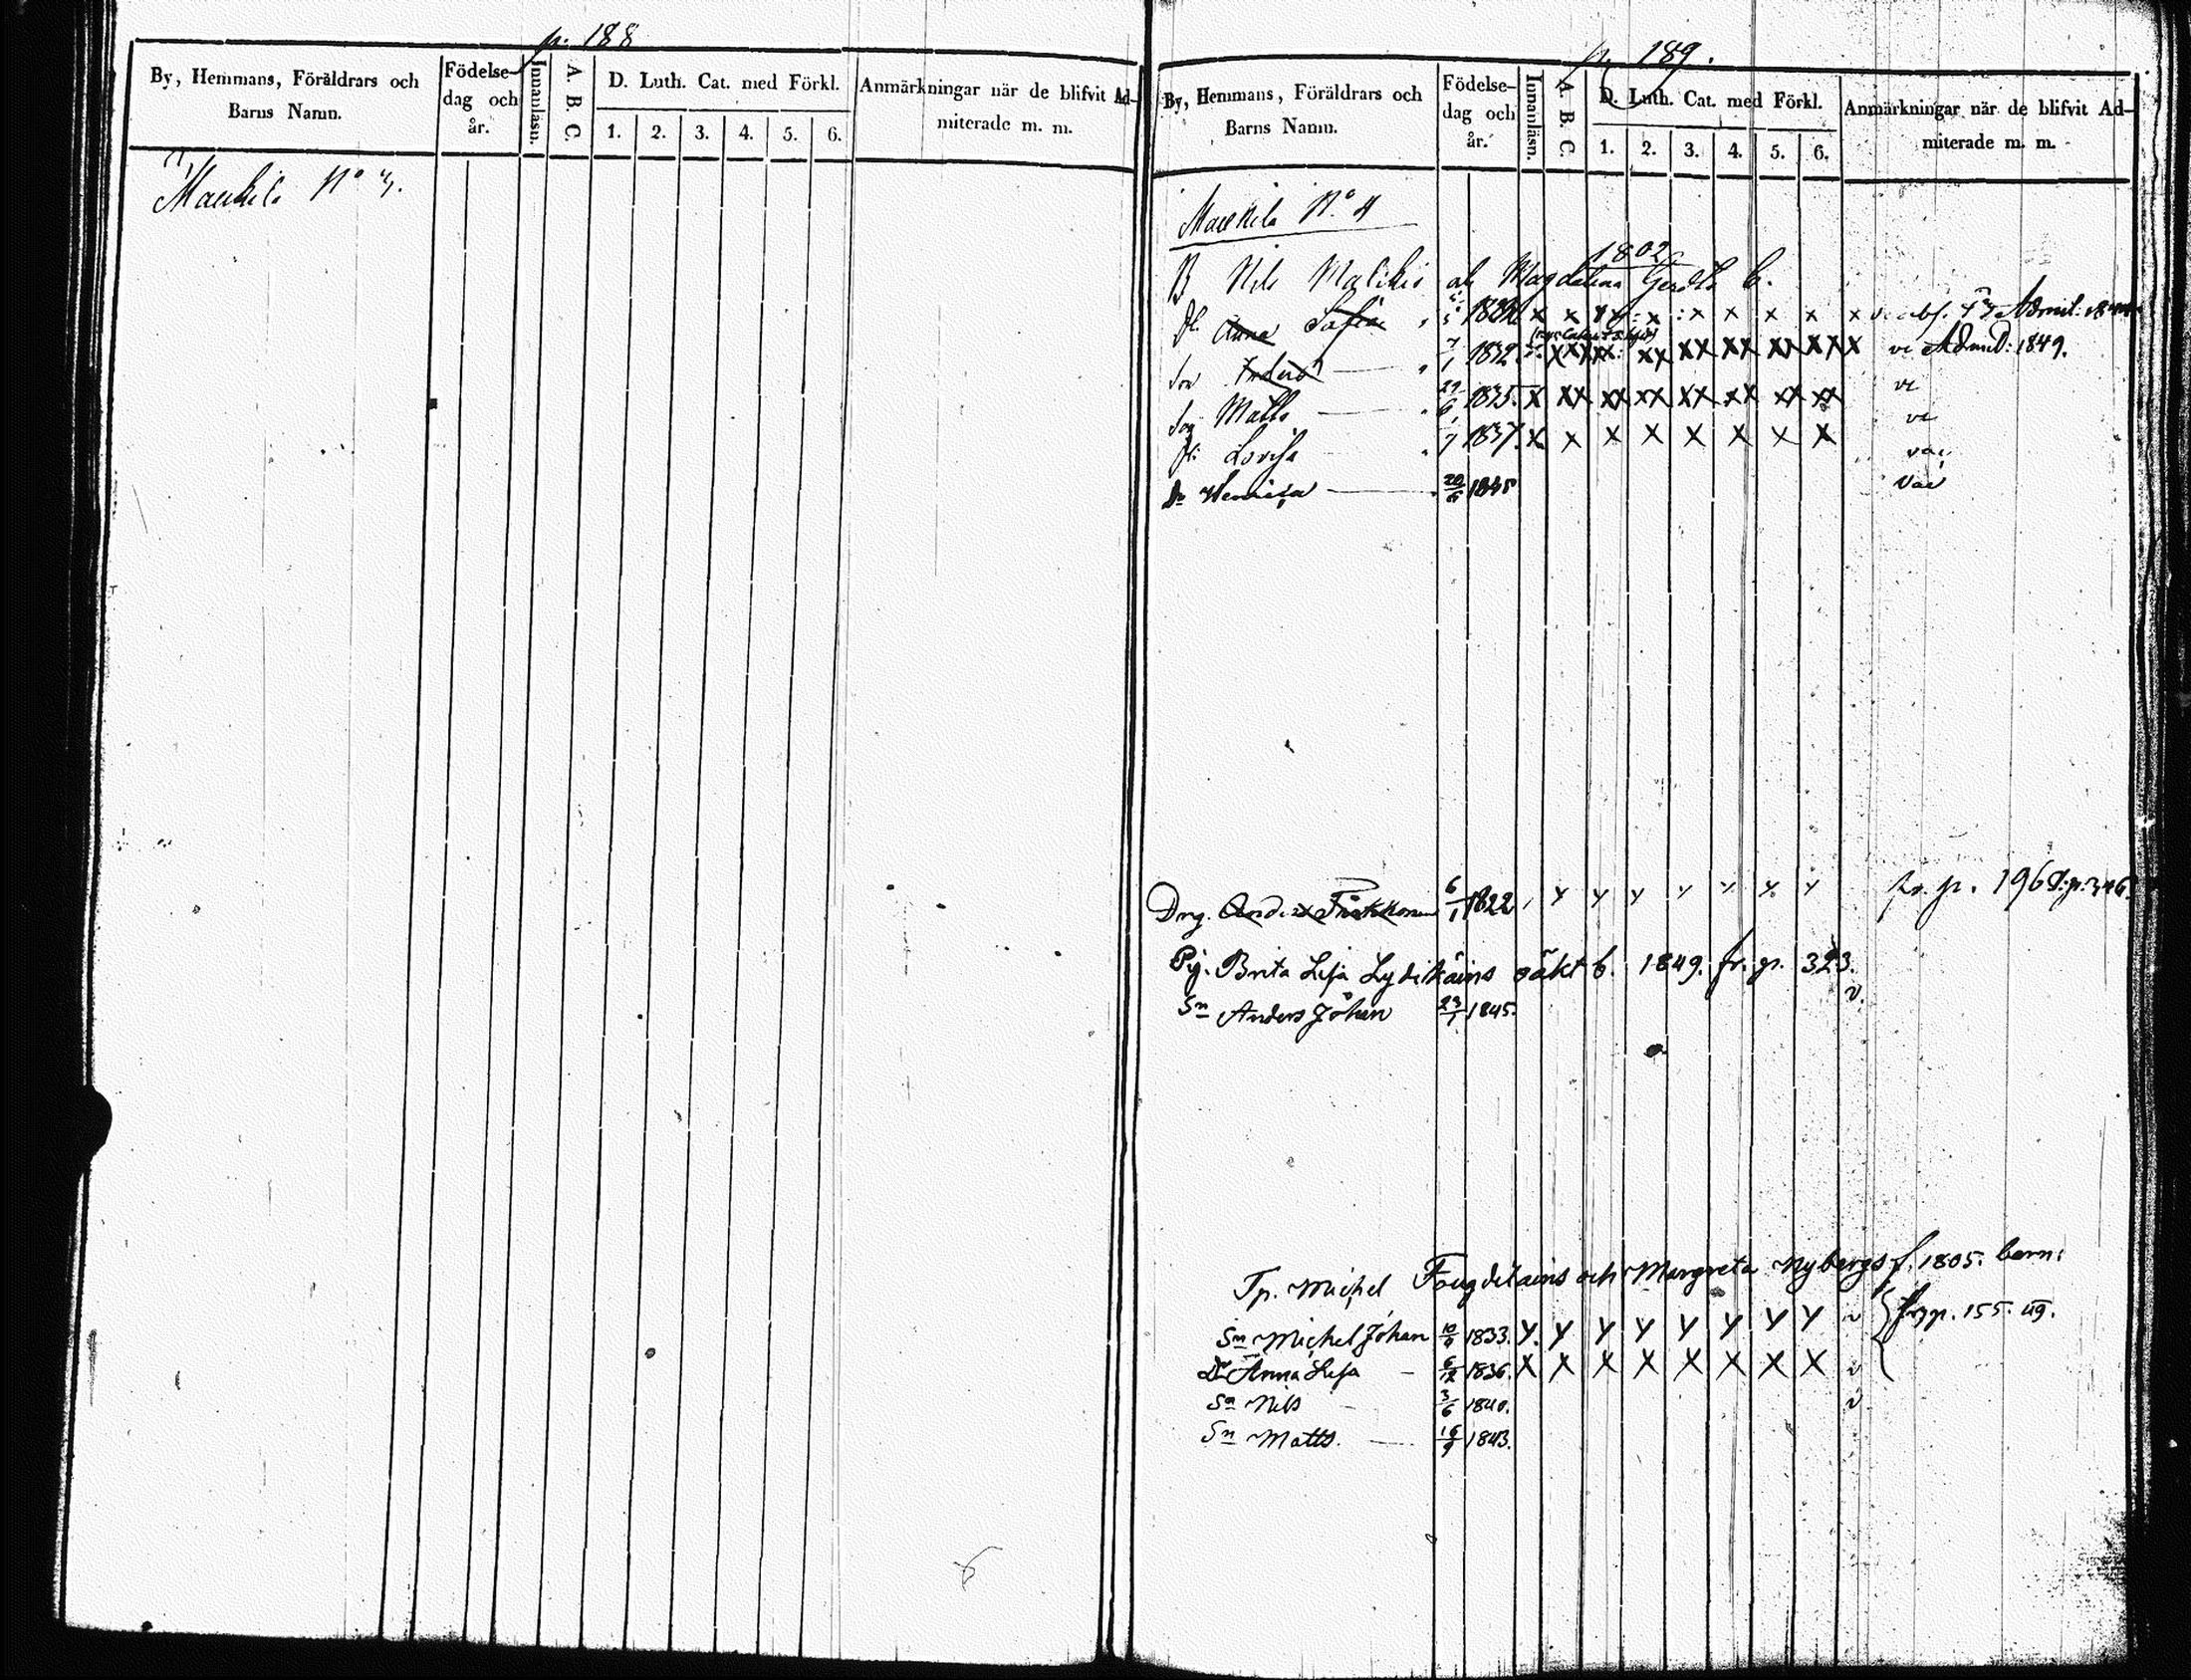 p. 188
By, Hemmans, Föräldrars och Barns Namn.
Födelse-dag och år.
Innanläsn.
A. B. C.
D. Luth. Cat. med Förkl.
1. 2. 3. 4. 5. 6.
Anmärkningar när de blifvit Admiterade m. m.
Maukila No 3.
p. 189.
By, Hemmans, Föräldrars och Barns Namn.
Födelse-dag och år.
Innanläsn.
A. B. C.
D. Luth. Cat. med Förkl.
1. 2. 3. 4. 5. 6.
Anmärkningar när de blifvit Admiterade m. m.
Maukila No 4
1802
B Nils Malikis och Magdalena Gerdts b.
Dr. Anna Sofia x x x x x x x x Admit:
Son 7/1 1832. x xx xx xx xx xx xx xx x ve Admit: 1849.
Son Matts 29/6 1835. x xx xx xx xx xx xx xx ve
Dr. Lovisa 1/7 1837. x x x x x x x x ve
Dr Henrica 20/5 1845 vac
Drg. Anders 6/1 1822 fr. p. 196 d:p: 346
Pig. Brita Lisa Lydikäins oäkt b. 1849. fr. p. 323.
Sn Anders Johan 23/1 1845. v.
Tp. Michel Fougdelains och Margreta Nybergs f. 1805. barn:
Sn Michel Johan 1833. x x x x x x x x v fr p. 155. 49.
Dr Anna Lisa 6/12 1836. x x x x x x x x v
Sn Nils 3/6 1840. v
Sn Matts. 16/9 1843.